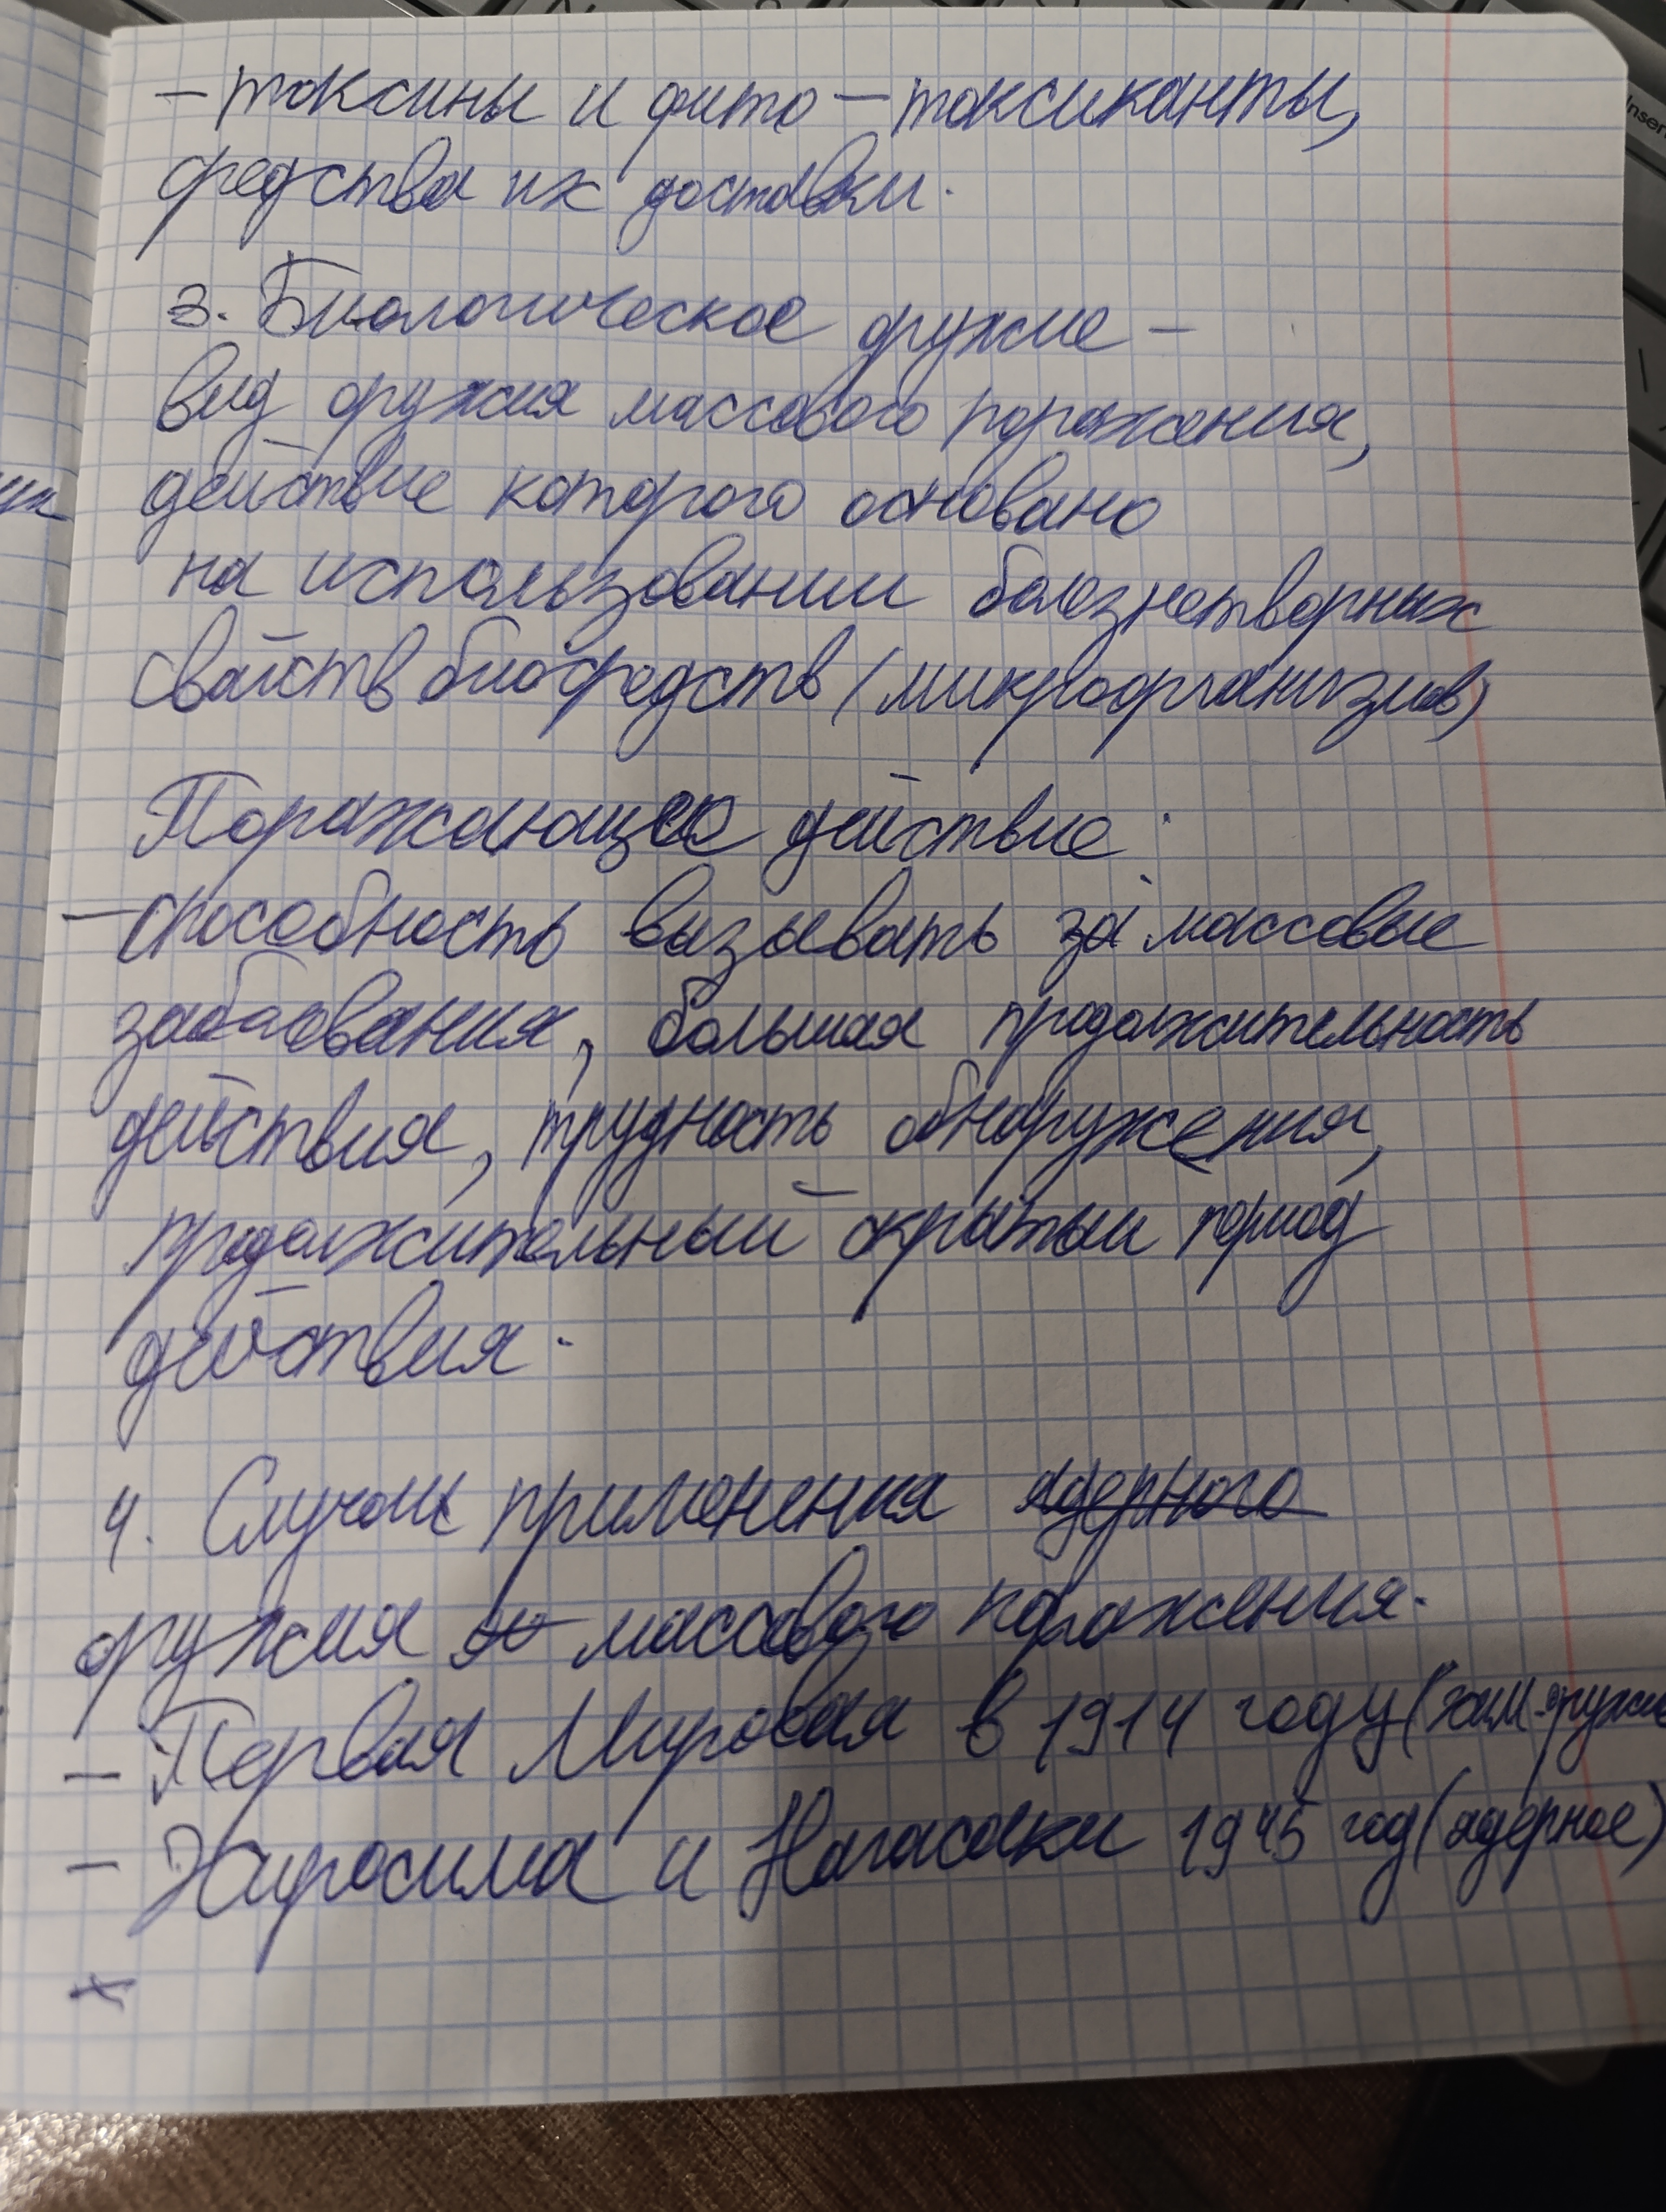 - токсины и фито-токсиканты,
средства их доставки.
3. Биологическое оружие -
вид оружия массового поражения,
действие которого основано
на использовании болезнетворных
свойств биосредств (микроорганизмов)
Поражающее действие:
- способность вызывать за массовые
заболевания, большая продолжительность
действия, трудность обнаружения,
продолжительный скрытый период
действия.
4. Случаи применения ядерного
оружия массового поражения.
- Первая Мировая в 1914 году (хим. оружие
- Хиросима и Нагасаки 1945 год (ядерное)